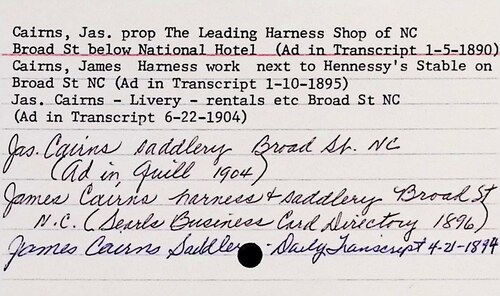 Cairns, Jas. prop The Leading Harness Shop of NC
Broad St below National Hotel (Ad in Transcript 1-5-1890)
Cairns, James Harness work next to Hennessy's Stable on
Broad St NC (Ad in Transcript 1-10-1895)
Jas. Cairns - Livery - rentals etc Broad St NC
(Ad in Transcript 6-22-1904)
Jas. Cairns saddlery Broad St. NC
(Ad in Quill 1904)
James Cairns harness & saddlery Broad St
N.C. (Searls Business Card Directory 1896)
James Cairns Saddler - Daily Transcript 4-21-1894